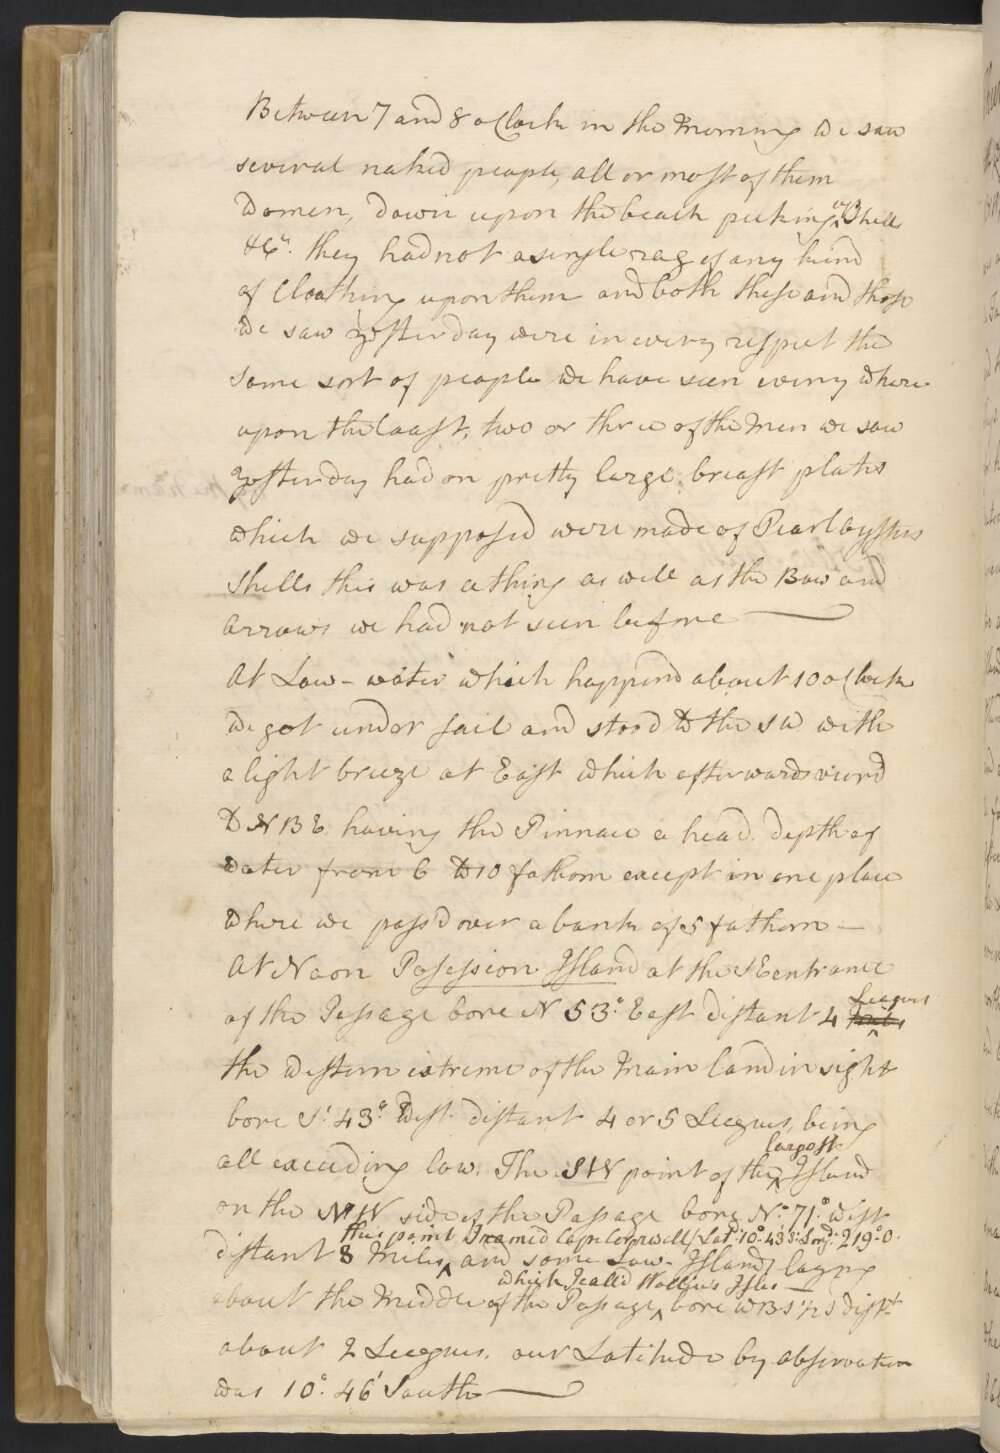 Between 7 and 8 oClock in the Morning we saw
several naked people, all or most of them
Women, down upon the beach picking up Shells
&Ca. they had not a single rag of any kind
of Cloathing upon them and both these and those
we saw yesterday were in every respect the
same sort of people we have seen every where
upon the Coast, two or three of the Men we saw
yesterday had on pretty large breast plates
which we supposed were made of Pearl Oysters
Shells this was a thing as well as the Bow and
arrows we had not seen before
At Low-water which happend about 10 oClock
we got under sail and stood to the SW with
a light breeze at East which afterwards veerd
to NBE having the Pinnace a head. depth of
water from 6 to 10 fathom except in one place
where we pass'd over a bank of 5 fathom —
At Noon Posession Island at the SE entrance
of the Passage bore N 53° East distant 4 Leagues
the western extreme of the Main land in sight
bore S. 43° West distant 4 or 5 Leagues, being
all exceeding low. The SW point of the largest Island
on the NW side of the Passage bore N° 71° West
distant 8 Miles this point I named Cape Cornwall (Latd 10° 43' S. Longd 219° 0. and some Low Islands laying
about the Middle of the Passage which I call'd Wallice's Isles bore WBS ½ S distt
about 2 Leagues. our Latitude by observation
was 10° 46' South